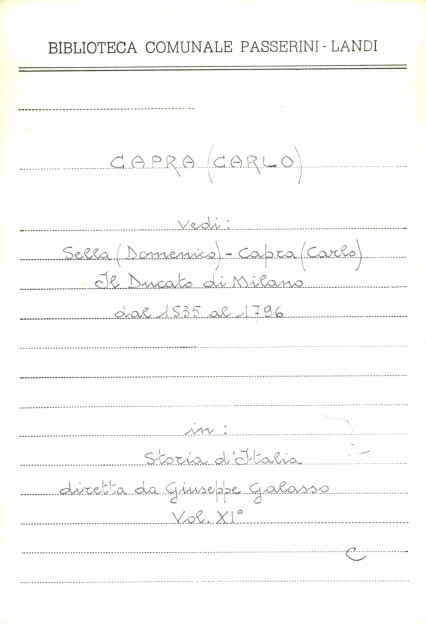 BIBLIOTECA COMUNALE PASSERINI - LANDI
CAPRA (CARLO)
Vedi:
Sella (Domenico) - Capra (Carlo)
Il Ducato di Milano
dal 1535 al 1796
in:
Storia d'Italia
diretta da Giuseppe Galasso
Vol. XI°
C